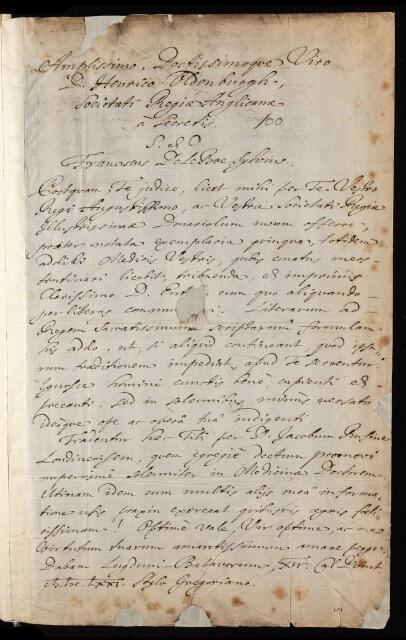 Amplissimo, Doctissimoque Viro
D. Henrico Oldenburgh,
Societati Regiæ Anglicanæ
à Secretis. 100
S. & O
Franciscus DeLeBoe Sylvius.
Postquam Te judice, licet mihi per Te Vestro
Regi Augustissimo, ac Vestræ Societati Regiæ
Illustrissimæ Donariolum meum offerre,
præter notata exemplaria quinque, totidem
addidi Medicis Vestris, quibus conatus meos
scrutinari licebit, tribuenda, et inprimis
Clarissimo D. Ent cum quo aliquando
per literas Literarum ad
Regem Serenissimum scriptarum formulam
his addo, ut, si aliquid contineant, quod ipsa-
rum traditionem impediat, apud Te serventur
Ignosce homini cunctis bene cupienti et
precanti, sed in solennibus minus versato
ideoque ope ac operâ tuâ indigenti
Tradentur hæ Tibi per D. Jacobum
Londinensem, quem egregiè doctum promovi
nuperrimè solenniter in Medicinæ Doctorem.
Utinam idem cum multis alijs meâ informa-
tione usis praxin exerceat quibusvis ægris feli-
cissimam! Optimè vale, Vir optime, ac me
Virtutum Tuarum amantissimum amare perge.
Dabam Lugduni-Batavorum, XIV. Cal.
LXXI. Stylo Gregoriano.